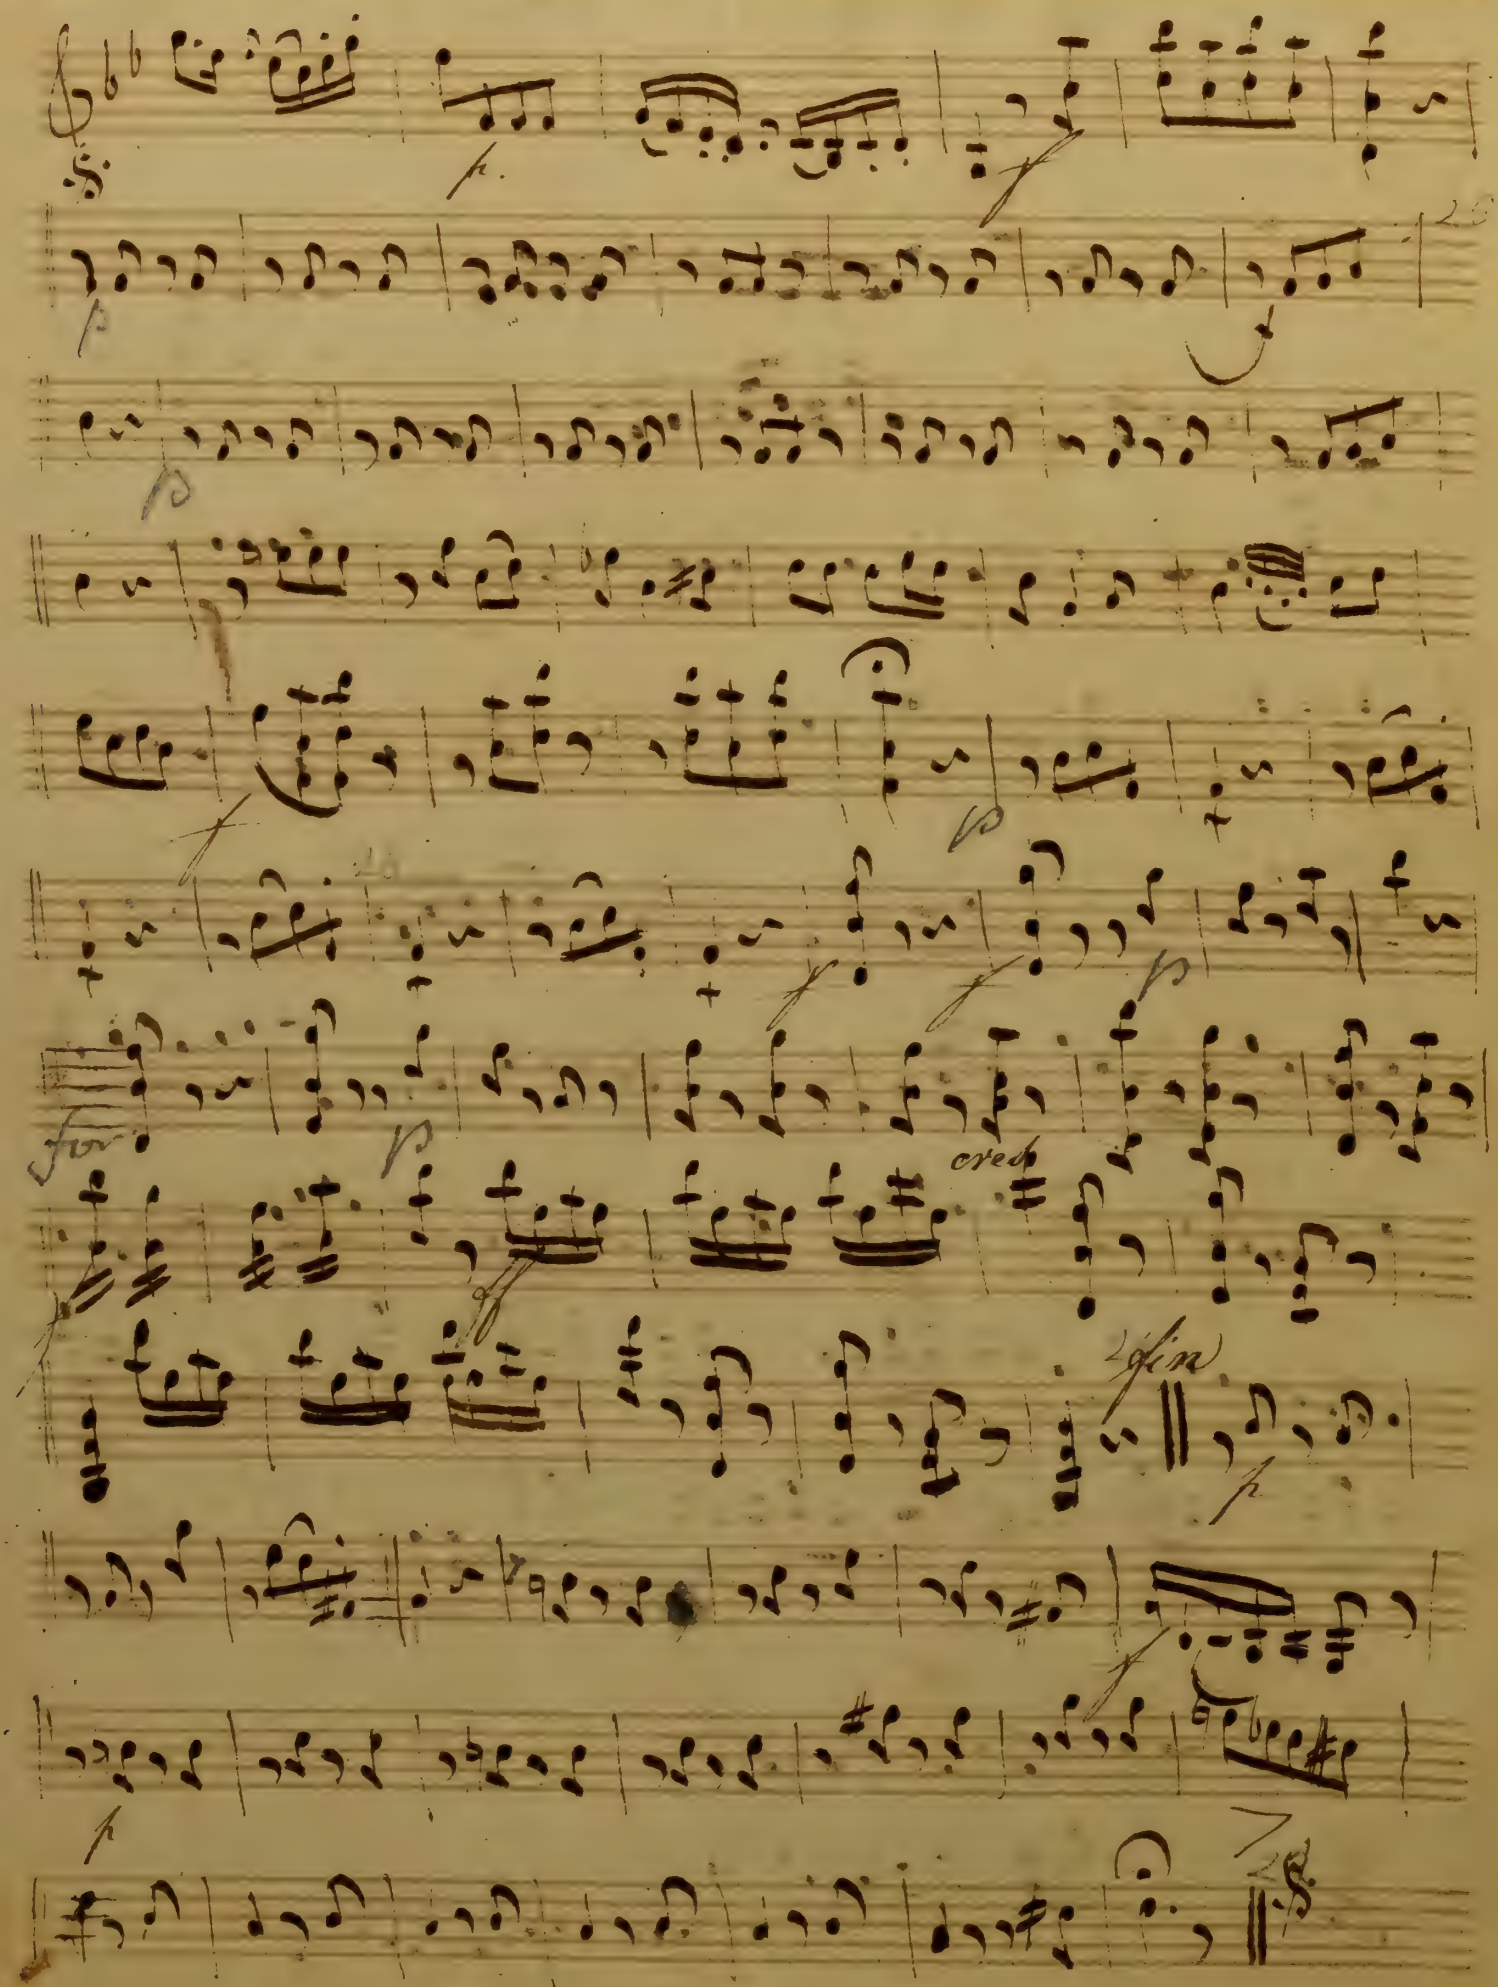 p.
f
p
f
p
f
p
f
f
p
for
p
cres
f
ff
fin
p
f
p